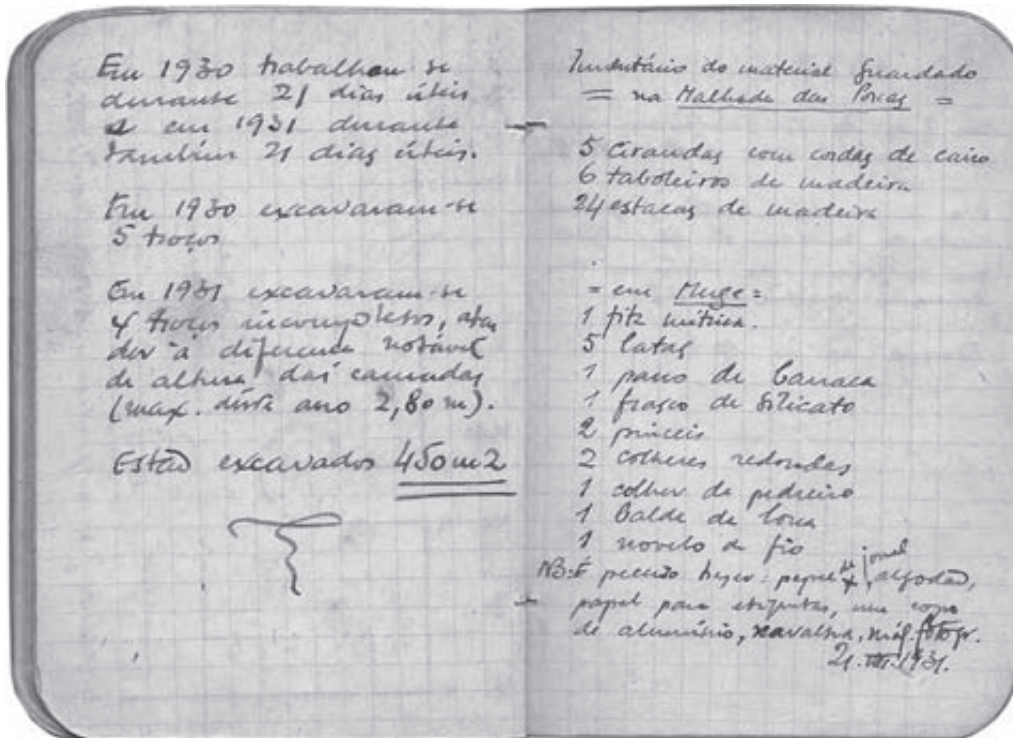 Em 1930 trabalhou-se
durante 21 dias úteis
e em 1931 durante
também 21 dias úteis.
Em 1930 excavaram-se
5 troços
Em 1931 excavaram-se
4 troços incompletos, aten
der à diferença notável
de altura das camadas
(max. deste ano 2,80 m).
Estão excavados 450 m2
Inventário do material guardado
= na Malhada das Porcas =
5 cirandas com cordas de cairo
6 taboleiros de madeira
24 estacas de madeira
= em Muge =
1 fita métrica.
5 latas
1 pano de barraca
1 frasco de silicato
2 pinceis
2 colheres redondas
1 colher de pedreiro
1 balde de lona
1 novelo de fio
NB: É preciso trazer: papel de jornal, algodão,
papel para etiquetas, um copo
de aluminio, navalha, máq. fotogr.
21.VIII.1931.